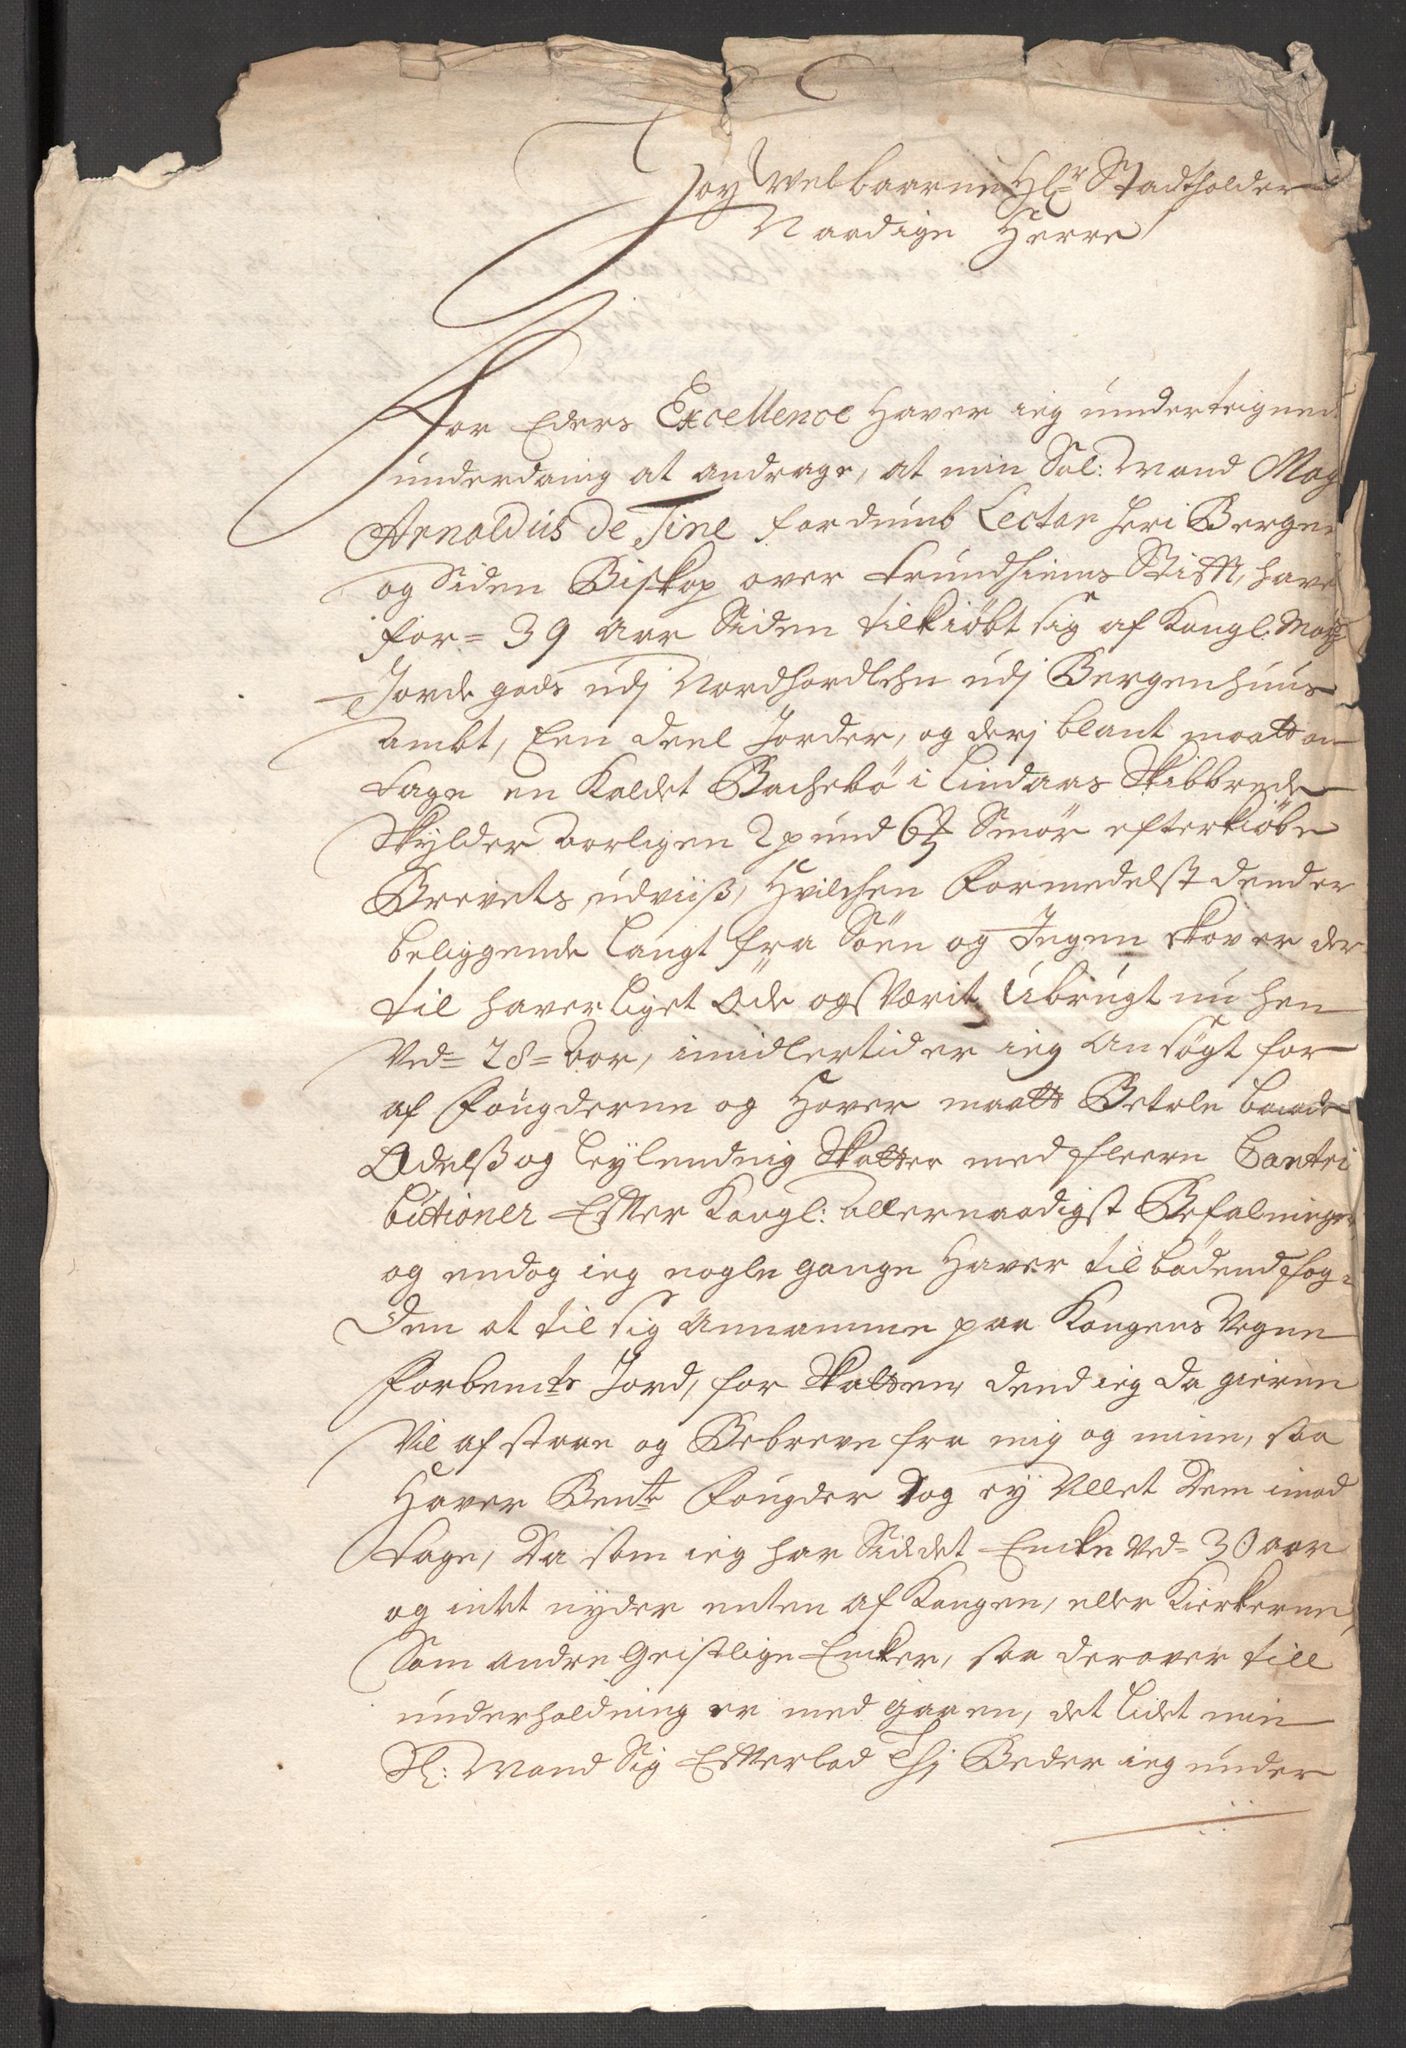 Høy Welbaarne Hl:r Stadtholder
Naadige Herre
For Eders Excellence Haver ieg underteigned
underdanig at andrage, at min Sal: Mand Mag
Arnoldus de Fine fordumb Lector heri Bergen
og Siden Biskop over Trundhiems Stifft, have
for= 39 aar Siden tilkiøbt sig af Kongl. May:
Jorde gods udj Nordhordlehn udj Bergenhuus
ambt, Een deel Jorder, og derj blant maatte an
tage en Kaldet Bachebö i Lindaas Skibbrede
Skylder aarligen 2 pund 6 ℔ Smør efter kiøbe
Brevets udviiß, Hvilchen Formedelst dend er
beliggende langt fra Söen og Ingen skov er der
til haver liget Øde og Værit Ubrugt nu hen
Ved= 28= aar, imidlertid er ieg Ansøgt for
af Fougderne og Haver maatt Betale baade
Odelß og Leylendnig Skatter med fleere Contri
butioner Effter Kongl: allernaadigst Befalninger
og endog ieg nogle gange Haver tilbödend fog-
den at til sig Annamme paa Kongens Vegne
Forbemte Jord, for Skatten, dend ieg da gierne
Vil afstaae og Bebreve fra mig og mine, saa
Haver Bemte Fougder dog ey Villet dem imod
tage, Da som ieg har Siddet Encke Ved= 30 aar
og intet nyder enten af Kongen, eller Kierkerne,
Som andre Geistlige Encker, saa derover till
underholdning er medgaaen, det lidet min
Sl: Mand Sig Effterlod Thj Beder ieg under